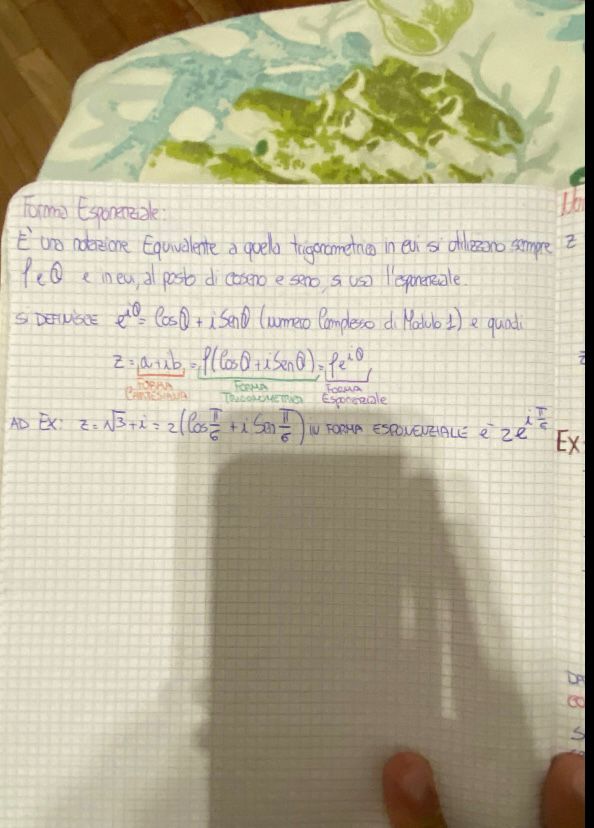 Forma Esponenziale:
È una notazione Equivalente a quella trigonometrica in cui si utilizzano sempre
ρ e θ e in cui, al posto di coseno e seno, si usa l'esponenziale.
SI DEFINISCE e^{iθ} = Cosθ + i Senθ (numero Complesso di Modulo 1) e quindi
z = a+ib = ρ(Cosθ + i Senθ) = ρe^{iθ}
FORMA CARTESIANA FORMA TRIGONOMETRICA FORMA Esponenziale
AD EX: z = √3 + i = 2(Cos π/6 + i Sen π/6) IN FORMA ESPONENZIALE è 2e^{i π/6}
z
z
Ex
CO
S